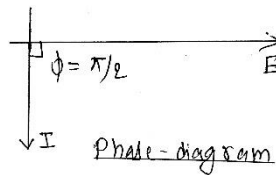 E
ϕ = π/2
I
Phase-diagram